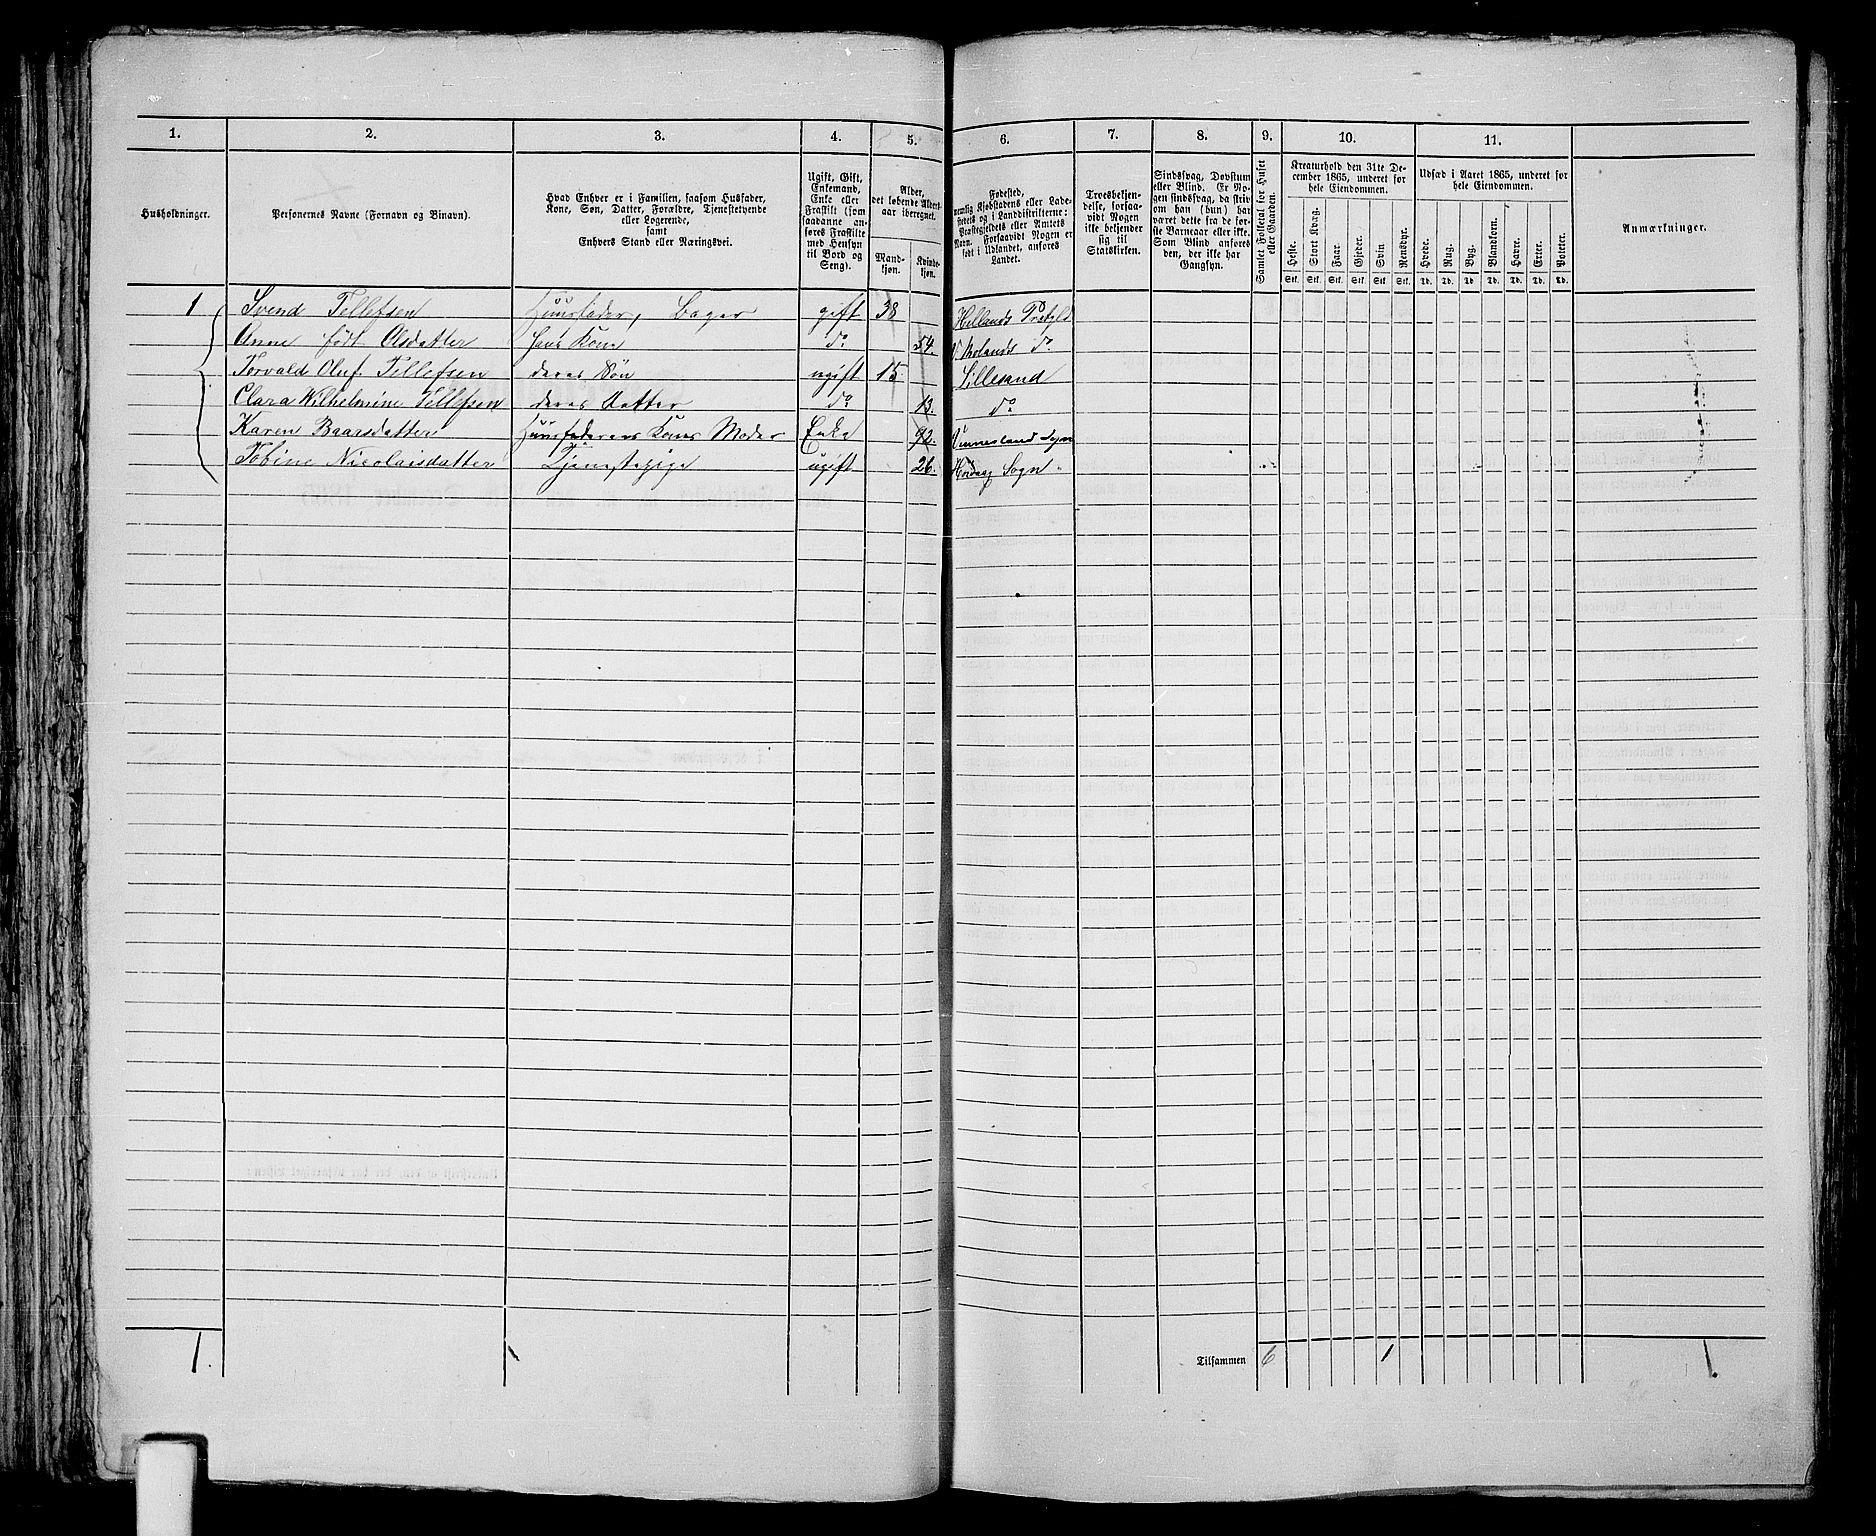 1. 2. 3. 4. 5. 6. 7. 8. 9. 10. 11.
Husholdninger.
Personernes Navne (Fornavn og Binavn).
Hvad Enhver er i Familien, saasom Husfader,
Kone, Søn, Datter, Forældre, Tjenstetyende
eller Logerende,
samt
Enhvers Stand eller Næringsvei.
Ugift, Gift,
Enkemand,
Enke eller
Fraskilt (som
saadanne an-
føres Fraskilte
med Hensyn
til Bord og
Seng).
Alder,
det løbende Alders-
aar iberegnet.
Mand-
kjøn.
Kvinde-
kjøn.
Fødested,
nemlig Kjøbstadens eller Lade-
stedets og i Landdistrikterne:
Præstegjeldets eller Amtets
Navn. Forsaavidt Nogen er
født i Udlandet, anføres
Landet.
Troesbekjen-
delse, forsaa-
vidt Nogen
ikke bekjender
sig til
Statskirken.
Sindssvag, Døvstum
eller Blind. Er No-
gen sindssvag, da skriv
om han (hun) har
været dette fra de før-
ste Barneaar eller ikke.
Som Blind anføres
den, der ikke har
Gangsyn.
Samlet Folketal for Huset
eller Gaarden.
Kreaturhold den 31te De-
cember 1865, underet for
hele Eiendommen.
Heste. Stort Kvæg. Faar. Gjeder. Svin Rensdyr.
Stk. Stk. Stk. Stk. Stk. Stk.
Udsæd i Aaret 1865, underet for
hele Eiendommen.
Hvede. Rug. Byg. Blandkorn. Havre. Erter. Poteter.
Td. Td. Td. Td. Td. Td. Td.
Anmærkninger.
1 Svend Tellefsen Huusfader, Bager gift 38 Prstgld
Anne født Olsdatter Hans Kone do 54. do
Torvald Oluf Tellefsen deres Søn ugift 15 Lillesand
Clara Wilhelmine Tellefsen deres Datter do 13. do
Karen Baarsdatter Huusfaderens Kones Moder Enke 92. Sogn
Tobine Nicolaisdatter Tjenestepige ugift 26. Sogn
1. Tilsammen 6 1 1.